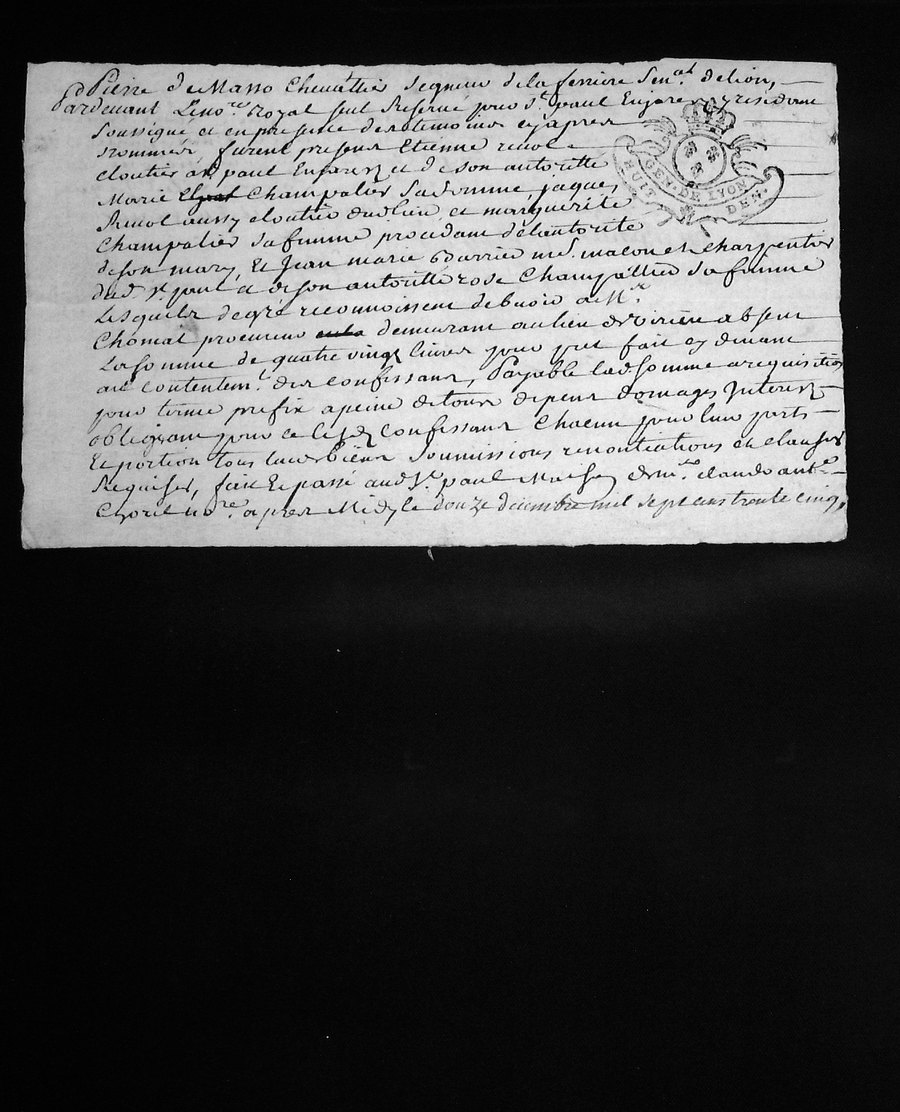 Pierre de Masso Chevallier Segneur de la ferriere Sen.al de lion,
Pardevant Le no.re Royal seul Reservé pour S.t paul En jarez y residant
Soussigné et en presence des temoins cy apres
nommés, furent presens Etienne
cloutier a S.t paul En jarez et de son autoritte
Marie Champalier sa femme, jaques
aussy cloutier dud lieu et marguerite
Champalier sa femme procedant de l'autorite
de son mary, Et Jean marie me. macon et charpentier
dud. S.t paul et de son autoritté rose Champallier sa femme
Lesquels de gré reconnoissent debvoir a M.r
Chomat procureur demeurant au lieu de virieu absent
La somme de quatre vingt livres pour pret fait cy devant
au contentem.t des confessans, Payable lad somme a requisition
pour terme prefix a peine de tous depens domages Interest
obligeant pour ce lesd confessans Chacun pour leur parts
Et portion tous leurs biens Soumissions renontiations et clauses
Requises, fait Et passé aud S.t paul Maison de m.re claude ant.e
no.re apres Midy le douze decembre mil sept cens trente cinq,
GEN. DE LYON
HUIT DEN.